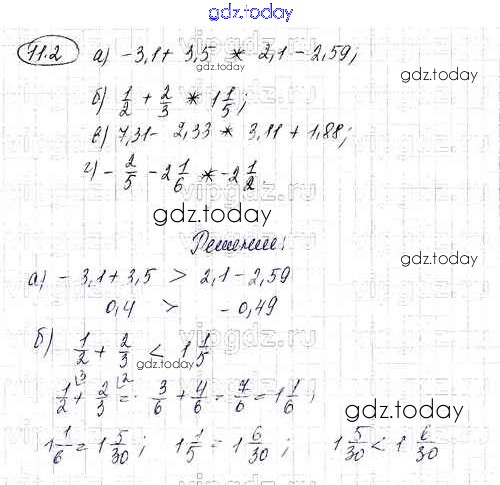 gdz.today
11.2 а) -3,1 + 3,5 * 2,1 - 2,59;
gdz.today
б) 1/2 + 2/3 * 1 1/5;
в) 7,31 - 2,33 * 3,11 + 1,88;
г) - 2/5 - 2 1/6 * -2 1/2.
vipgdz.ru
gdz.today
Решение:
gdz.today
а) - 3,1 + 3,5 > 2,1 - 2,59
0,4 > - 0,49
vipgdz.ru
б) 1/2 + 2/3 < 1 1/5
gdz.today
1/2 + 2/3 = 3/6 + 4/6 = 7/6 = 1 1/6;
gdz.today
1 1/6 = 1 5/30; 1 1/5 = 1 6/30; 1 5/30 < 1 6/30
gdz.today